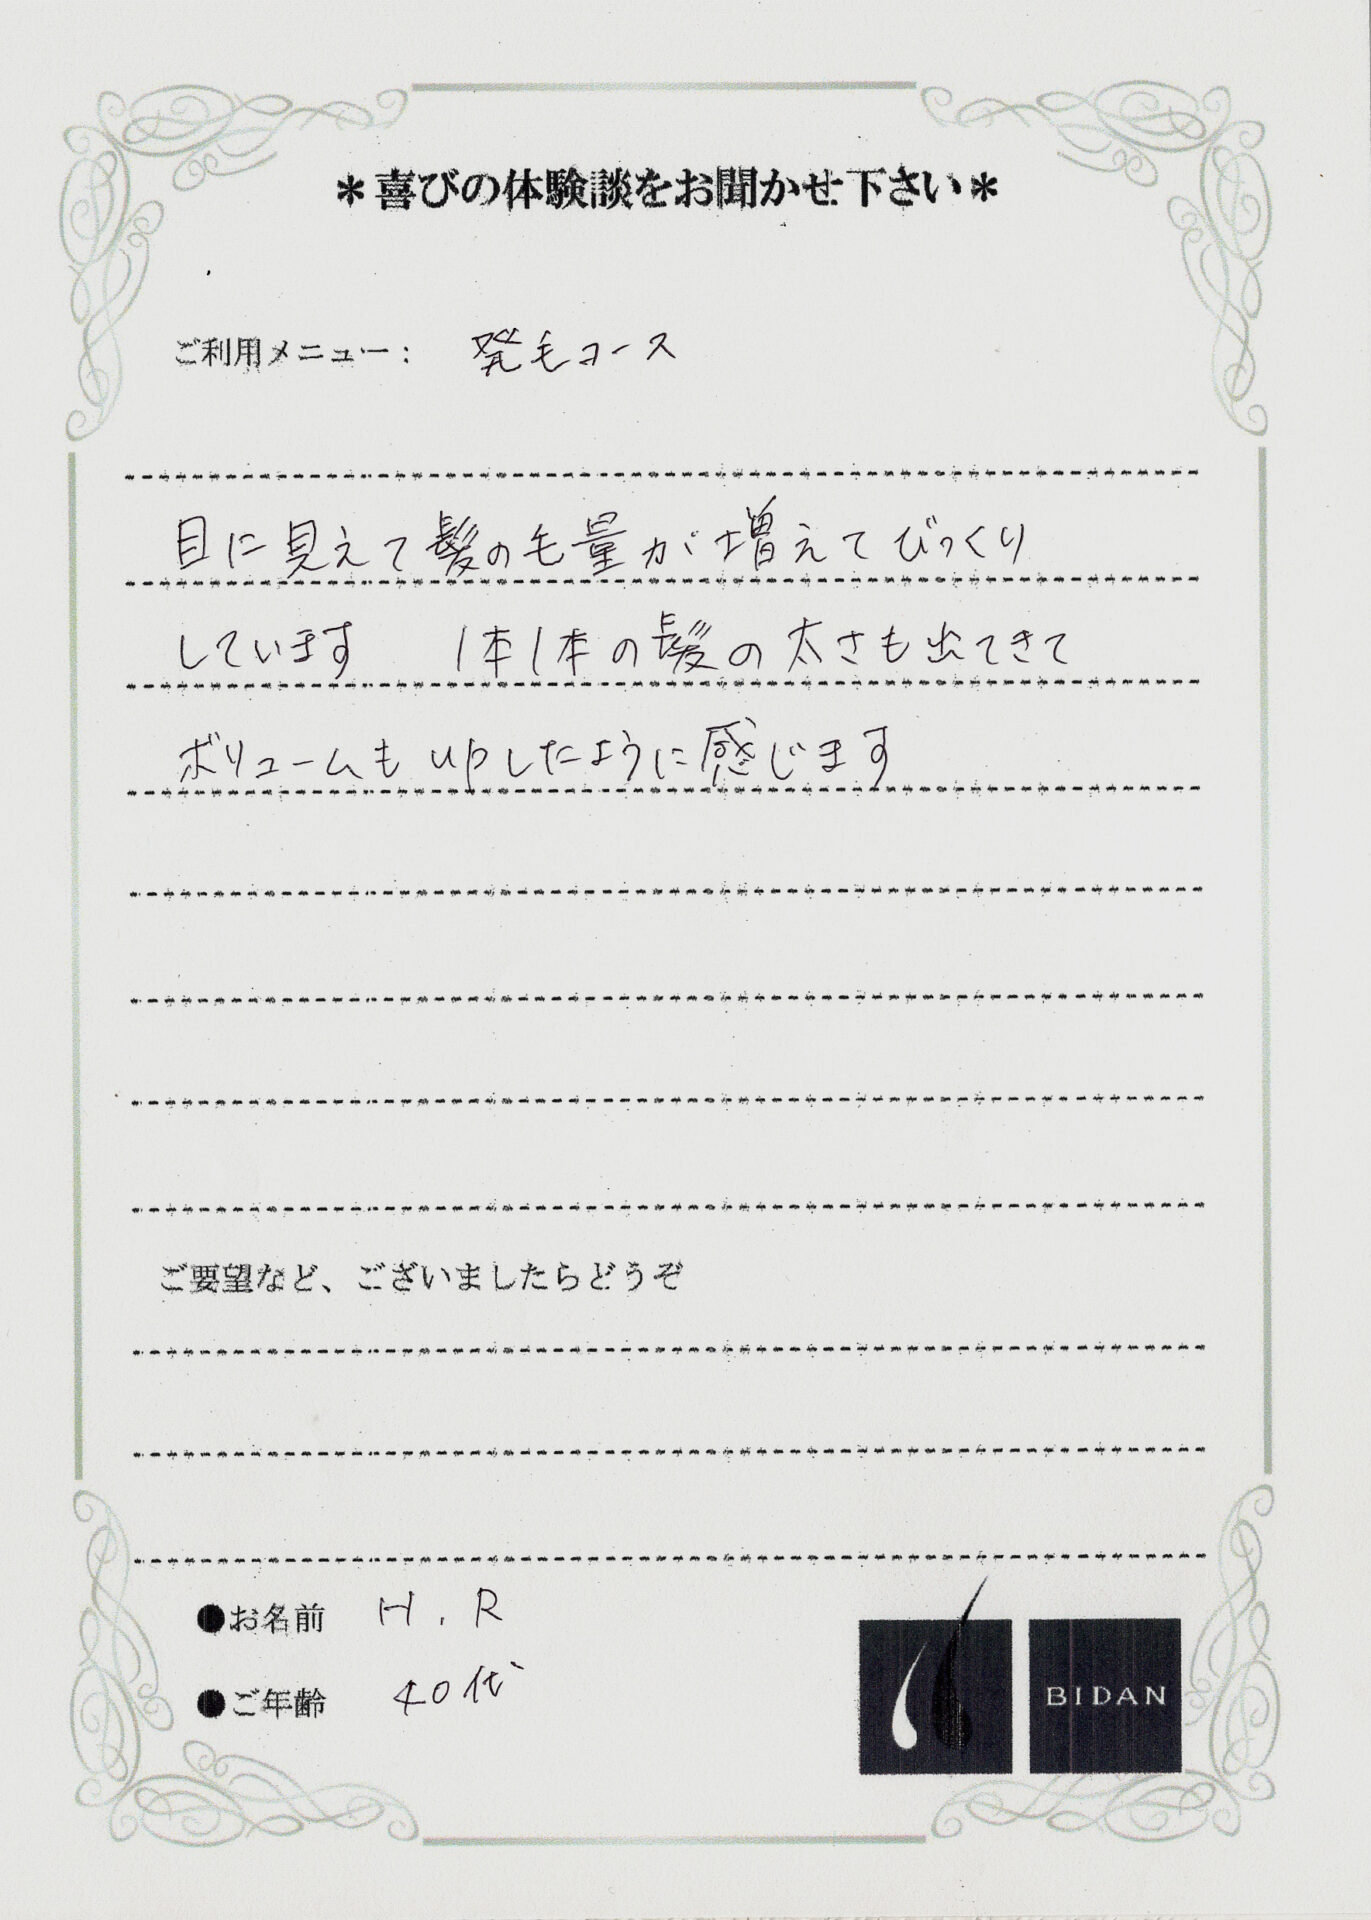 ＊喜びの体験談をお聞かせ下さい＊
ご利用メニュー： 発毛コース
目に見えて髪の毛量が増えてびっくり
しています 1本1本の髪の太さも出てきて
ボリュームもupしたように感じます
ご要望など、ございましたらどうぞ
●お名前 H.R
●ご年齢 40代
BIDAN